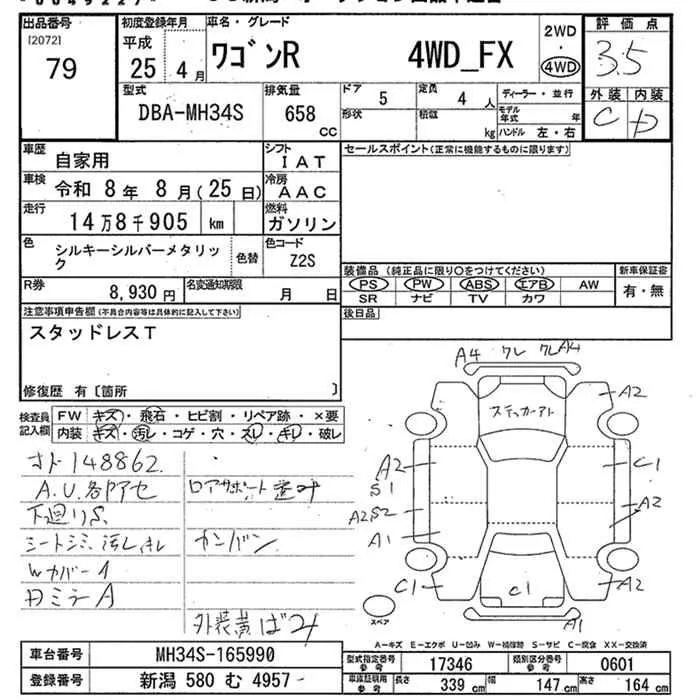 出品番号
[2072]
79
初度登録年月
平成
25 4月
車名・グレード
ワゴンR 4WD_FX
2WD
・
4WD
評価点
3.5
外装 内装
C D
型式
DBA-MH34S
排気量
658
CC
ドア 5
形状
定員 4 人
積載 kg
ディーラー・並行
モデル年式 年
ハンドル 左・右
車歴 自家用
車検 令和 8年 8月(25日)
走行 14万8千905 km
色 シルキーシルバーメタリック
色替
シフト IAT
冷房 AAC
燃料 ガソリン
色コード Z2S
R券 8,930円
名変通知期限 月 日
セールスポイント(正常に機能するものに限ります)
装備品(純正品に限り○をつけてください)
PS PW ABS エアB AW
SR ナビ TV カワ
新車保証書
有・無
後日品
注意事項申告欄(不具合内容等は具体的に記入して下さい)
スタッドレスT
修復歴 有〔箇所 〕
検査員記入欄
FW キズ・飛石・ヒビ割・リペア跡・×要
内装 キズ・汚レ・コゲ・穴・スレ・キレ・破レ
オド148862.
A.U.各所アセ
ロアサポート歪み
下廻りS.
シートシミ、汚レ、キレ
カンバン
Wカバー1
DミラーA
外装黄ばみ
A4 ワレ ワレ A4
A2
ステッカーアト
A2
S1
C1
A2 S2
A2
A1
C1
C1
A2
A1
スペア
A-キズ E-エクボ U-凹み W-補修跡 S-サビ C-腐食 XX-交換済
車台番号 MH34S-165990
登録番号 新潟 580 む 4957
型式指定番号 参考 17346
類別区分番号 参考 0601
車庫証明用 参考
長さ 339 cm
幅 147 cm
高さ 164 cm